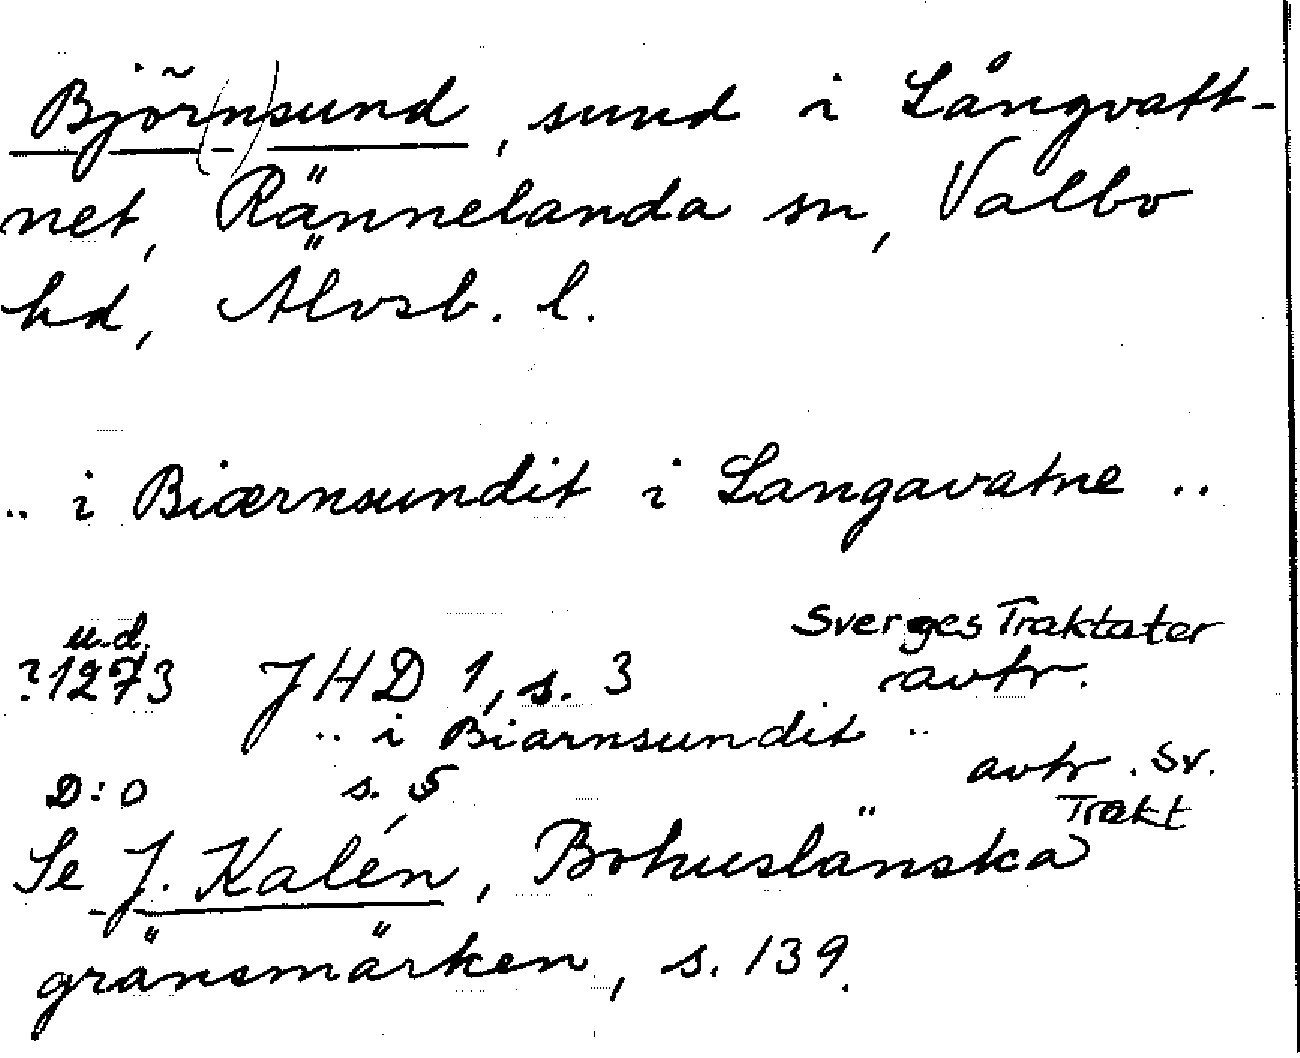 Björ(n)sund, sund i Långvatt-
net, Rännelanda sn, Valbo
hd, Älvsb. l.
.. i Biærnsundit i Langavatne ..
u.d.
Sverges Traktater
?1273 JHD 1, s. 3 avtr.
.. i Biarnsundit ..
D:o s. 5 avtr. Sv.
Trakt
Se J. Kalén, Bohuslänska
gränsmärken, s. 139.